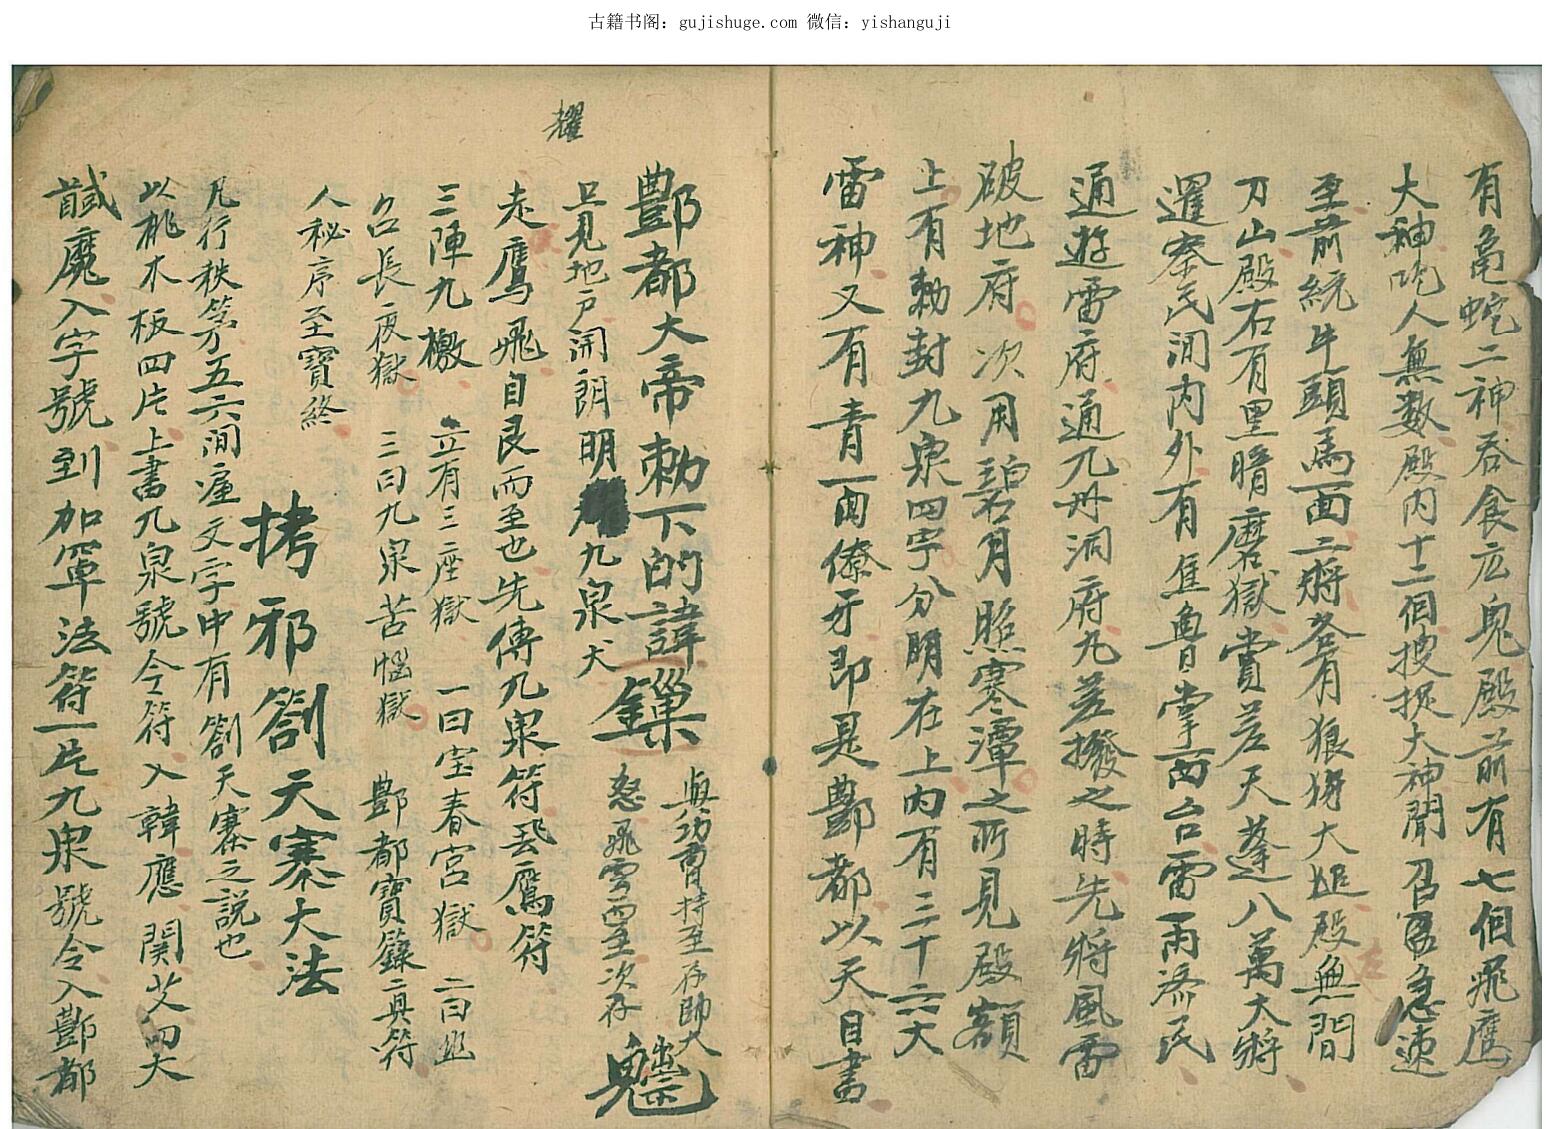 古籍书阁：gujishuge.com 微信：yishanguji
有亀蛇二神吞食広鬼殿前有七個飛鷹
大神吃人無数殿内十二個捜捉大神聞召急速
至前統牛頭馬面二将各有狼大殿無間
刀山殿右有黒暗磨獄賞差天蓬八萬大将
邏察民间内外有魯掌西台雷雨済民
通遊雷府通九州洞府九差撥之時先将風雷
破地府次用碧月照寒潭之所見殿額
上有勅封九泉四字分明在上内有三十六大
雷神又有青面僚牙即是酆都以天目書
耀
酆都大帝勅下的諱
與功曹持至存帥大
怒飛雲而至次存
上見地户開朗明九泉犬
走鷹飛自艮而至也先傳九泉符飛鷹符
三陣九檄 立有三座獄 一曰宝春宮獄 二曰幽
召長夜獄 三曰九泉苦惱獄 酆都寶籙真符
人秘序至寶終
拷邪劄天寨大法
凡行秩等五六間産文字中有劄天寨之説也
以桃木板四片上書九泉號令符入韓應関艾四大
馘魔入字號到加罩法符一片九泉號令入酆都